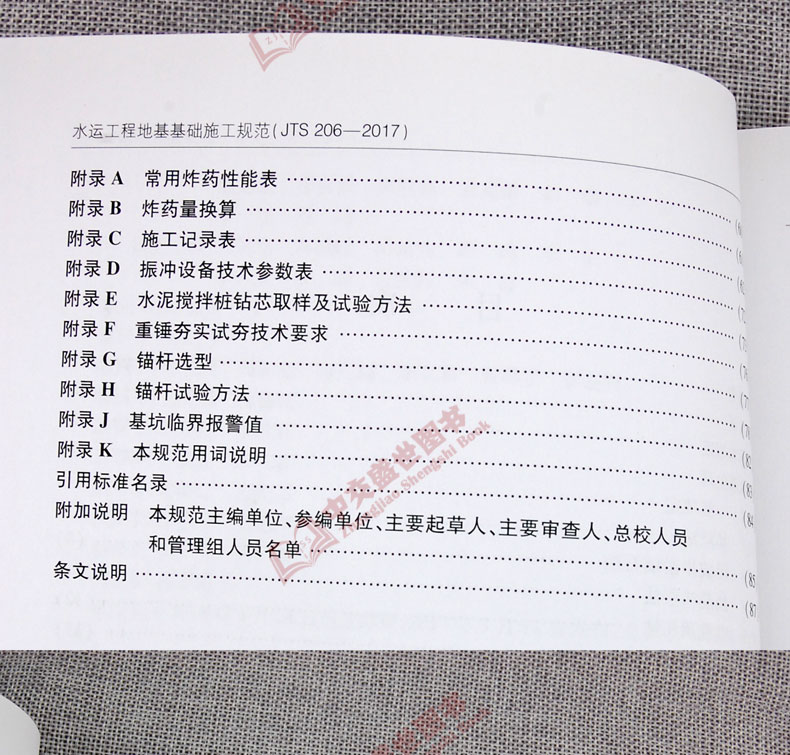 水运工程地基基础施工规范(JTS 206—2017)
附录 A 常用炸药性能表
附录 B 炸药量换算
附录 C 施工记录表
附录 D 振冲设备技术参数表
附录 E 水泥搅拌桩钻芯取样及试验方法
附录 F 重锤夯实试夯技术要求
附录 G 锚杆选型
附录 H 锚杆试验方法
附录 J 基坑临界报警值
附录 K 本规范用词说明 (82
引用标准名录 (83
附加说明 本规范主编单位、参编单位、主要起草人、主要审查人、总校人员 (84
和管理组人员名单 (85
条文说明 (87
中交盛世图书
Zhongjiao Shengshi Book